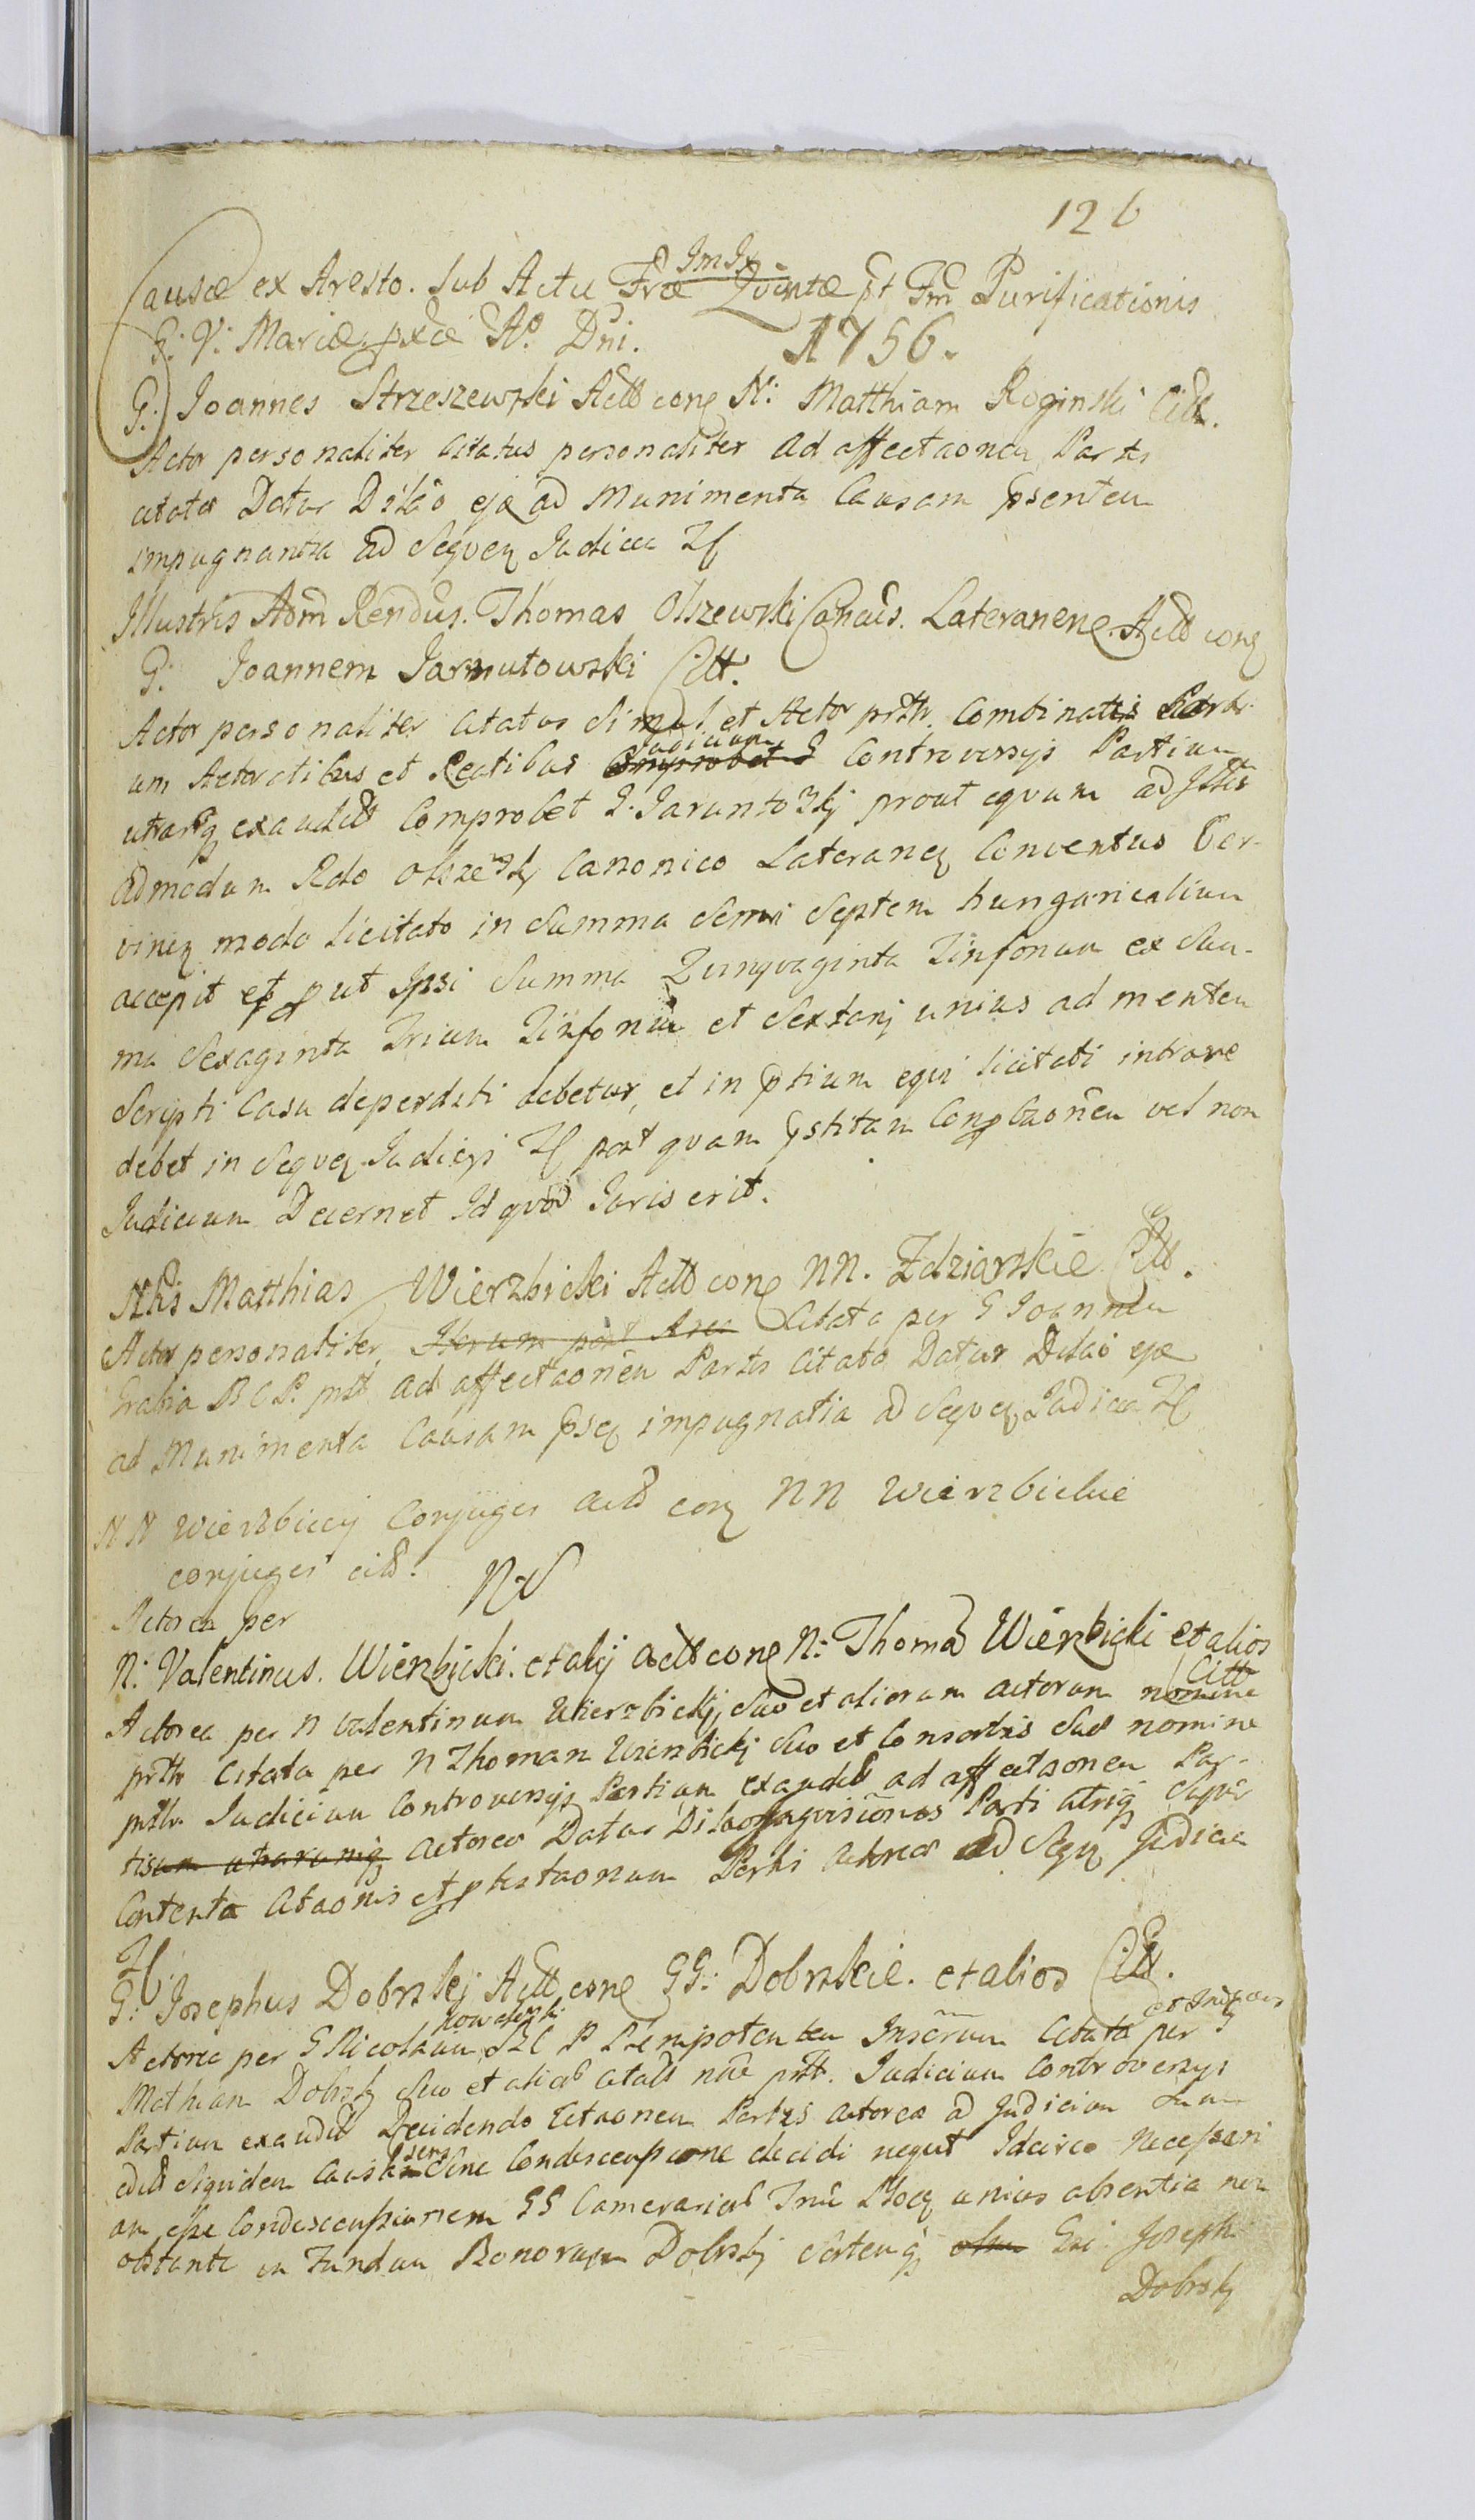 126
Causæ ex Aresto. Sub Actu Friæ Quintæ pt Fm Purificationis
B: V: Mariæ pxæ Ao. Dni. 1756.
G. Joannes Strzeszewski Actt cone N: Matthiam Roginski Citt.
Actor personaliter Citatus personaliter ad affectaonem Partis
citatæ Datur Dilao ejæ ad Munimenta Causam psentem
impugnantia ad Sequen Judicia
Illustris Adm Rendus. Thomas Olszewski Canocus. Lateranene Actt cone
G. Joannem Jarnutowski Citt.
Actor personaliter citatus simul et Actor prtr. Combinatis Partis
um Actoratibus et Reatibus Judicium Controversys Partium
utarq exaudit Comprobet G. Jarunto3kj prout equum ad Ittr
admodum Rdo Olszew3kj Canonico Lateraneq Conventus Cer-
vineq modo licitato in Summa Semi Septem hungaricalium
accepit et put Ipsi Summa Quinquaginta Tinfonum ex Sum-
ma Sexaginta Trium Tinfoniu et Sextanj unius ad mentem
Scripti Casu deperditi debetur, et in ptium equi licitati intrare
debet in Sequeq Judicys post quam pstitam Conpbaonem vel non
Judicium Decernet Id quod Juris erit.
Nlis Matthias Wierzbicki Actt cone NN. Zdziarskie Citt.
Actor personaliter Citata per G Joannem
Gralia B C P. prtt ad affectaonem Partis Citatæ Datur Dilaio ejæ
ad Munimenta Causam pseq impugnatia ad Sequeq Judicia
NN Wierzbiccy Conjuges actt coneq NN Wierzbickie
conjuges citt.
Actorea per
N: Valentinus. Wierzbicki. et alij actt cone N: Thoma Wierzbicki et alios
Citt
Actorea per N Valentinum Wierzbickj, Suo et aliorum actorum nomine
prtr Citata per N Thoman Wierzbickj Suo et Consortis Suæ nomine
prttr. Judicium Controversys Partium exaudit ad affectaonem Par-
tis actoreæ Datur Dilao Inquisitiones Parti utriq Super
Contenta Citaonis et ptestaonum Parti actoreæ ad Seqq Judicia
G: Josephus Dobrskj Actt cone GG: Dobrskie. et alios Citt.
Actorea per G Nicolaum B C P Plenipotentem Inscrum Citata per G
Mathian Dobrskj Suo et aliorum citatt nne prtt. Judicium Controversys
Partium exaudit Decidendo Citaonem Partis actoreæ ad Judicium Suum
edit Siquidem Causa sine Condescensione decidi nequit Idcirco necessari
um esse Condescensionem GG Camerarior Absentia non
obstante in Fundum Bonorum Dobrskj Sortemq Gsi Josephi
Dobrskj